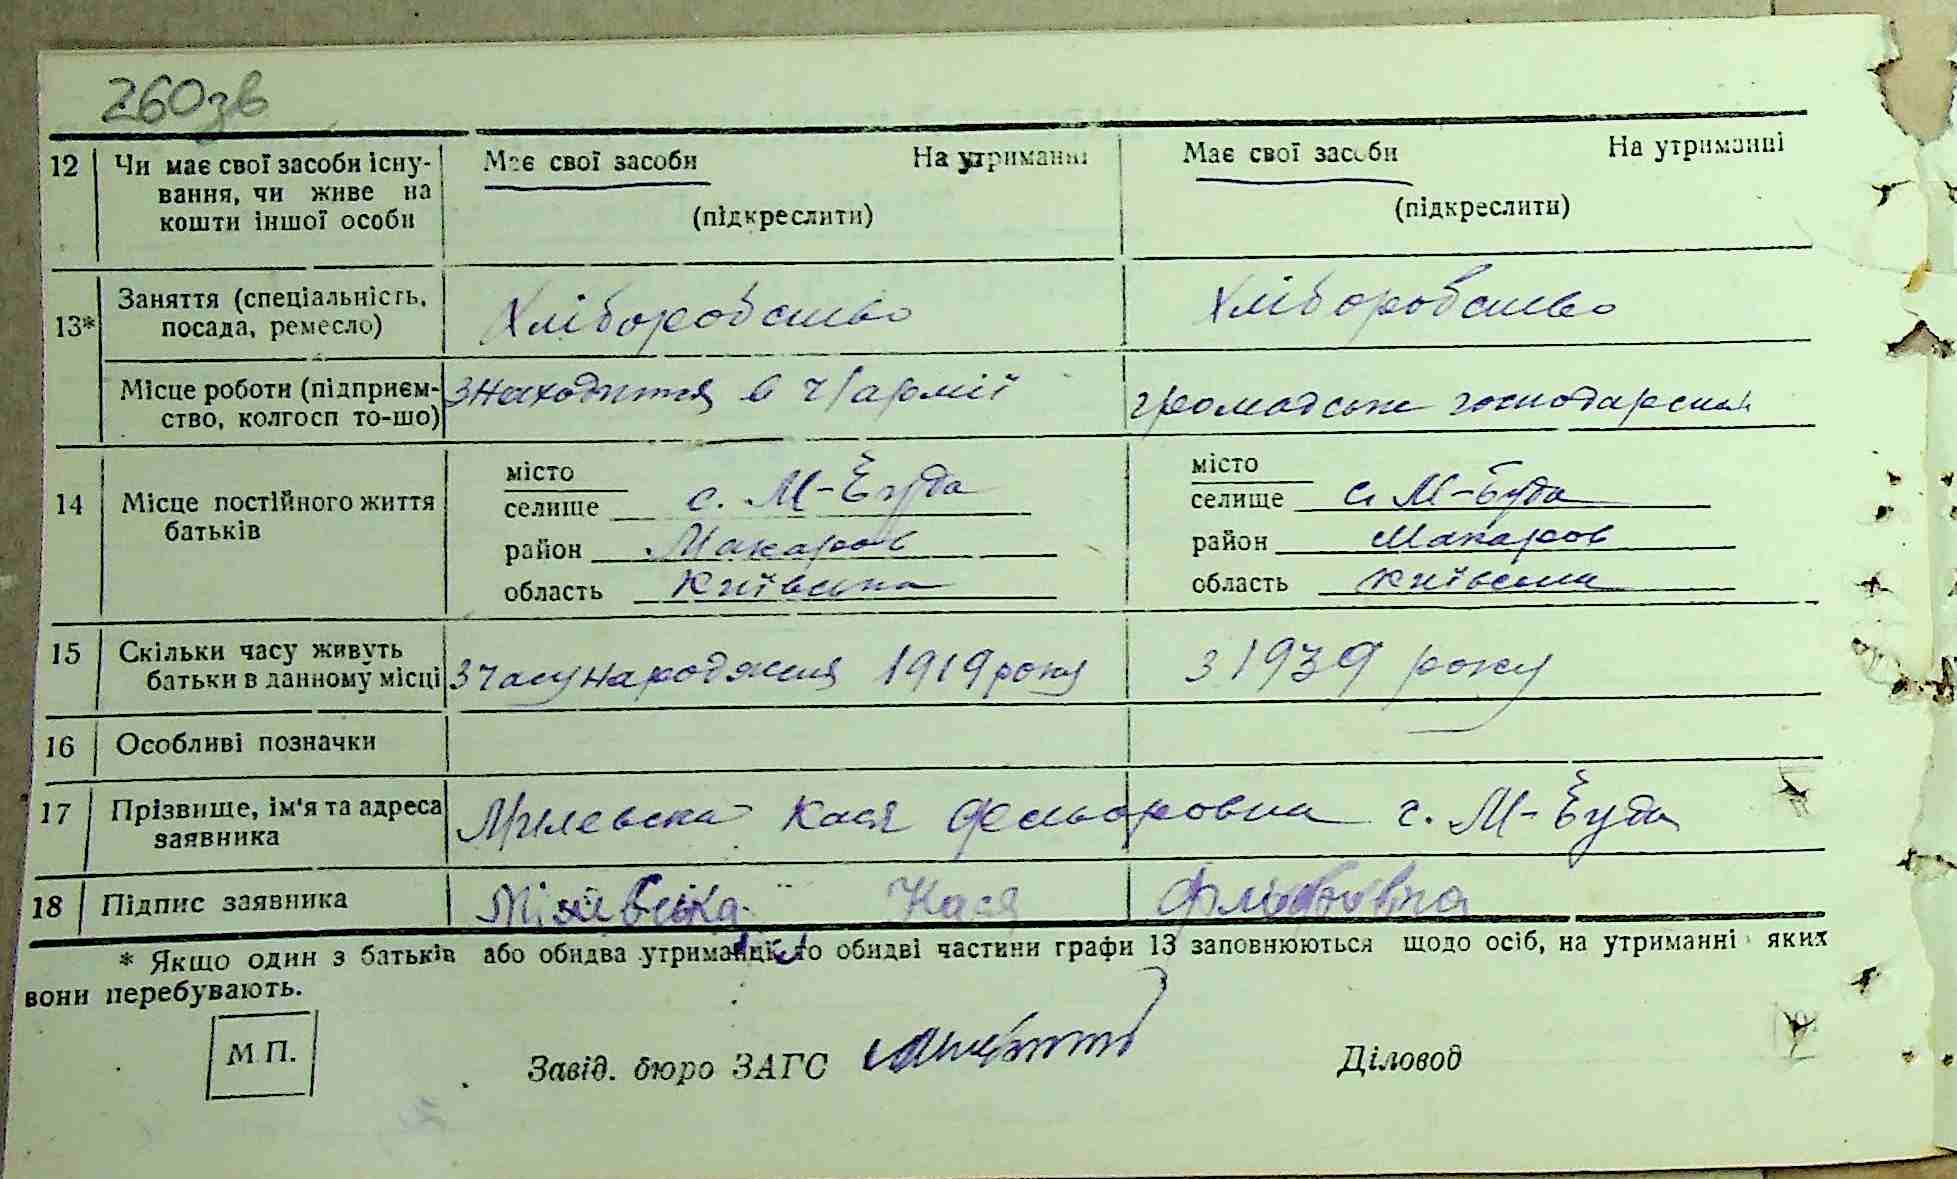 260зв
12 Чи має свої засоби існу- Має свої засоби На утриманні Має свої засоби На утриманні
вання, чи живе на
кошти іншої особи (підкреслити) (підкреслити)
13* Заняття (спеціальність, Хліборобство Хліборобство
посада, ремесло)
Місце роботи (підприєм- знаходиться в ч/армії громадське
ство, колгосп то-що)
14 Місце постійного життя батьків
місто місто
селище с. М-Буда селище с. М-Буда
район Макаров район Макаров
область Київська область Київська
15 Скільки часу живуть
батьки в данному місці з часу народження 1919 року з 1939 року
16 Особливі позначки
17 Прізвище, ім'я та адреса Мілевська Кася с. М-Буда
заявника
18 Підпис заявника Мілевська Кася
* Якщо один з батьків або обидва утриманці, то обидві частини графи 13 заповнюються щодо осіб, на утриманні яких
вони перебувають.
М.П. Завід. бюро ЗАГС Діловод